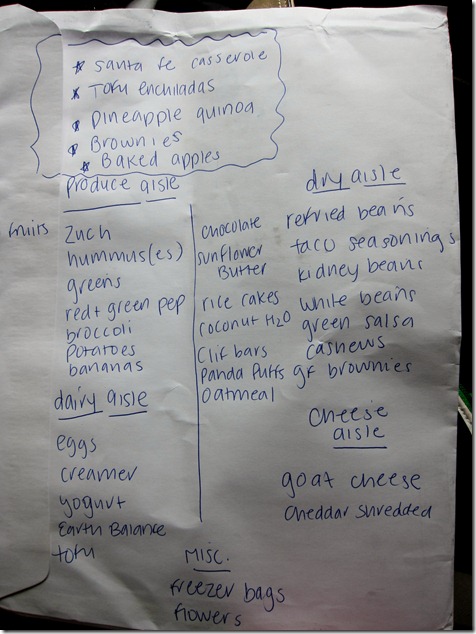 Santa fe casserole
Tofu enchiladas
Pineapple quinoa
Brownies
Baked apples
produce aisle
zuch
hummus(es)
greens
red + green pep
broccoli
potatoes
bananas
dairy aisle
eggs
creamer
yogurt
Earth Balance
tofu
chocolate
sunflower
Butter
rice cakes
coconut H2O
Clif bars
Panda Puffs
Oatmeal
dry aisle
refried beans
taco seasonings
kidney beans
white beans
green salsa
cashews
gf brownies
cheese
aisle
goat cheese
cheddar shredded
Misc.
freezer bags
flowers